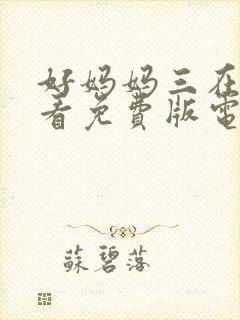 好妈妈三在
看免費版電
蘇碧落